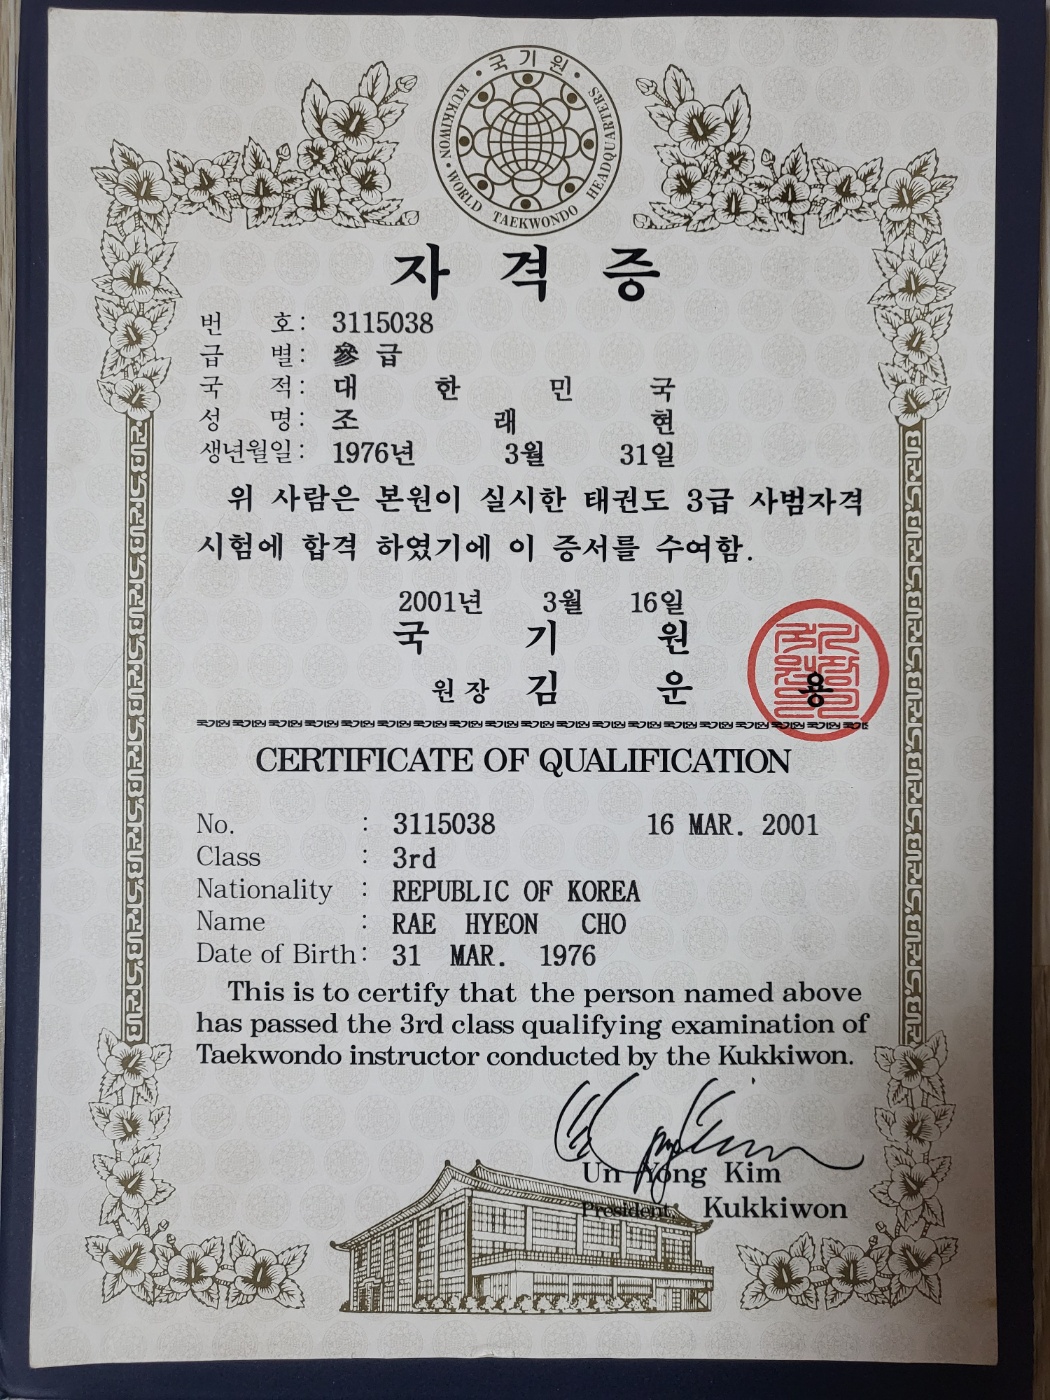 ·국기원·
KUKKIWON · WORLD TAEKWONDO HEADQUARTERS
자 격 증
번 호: 3115038
급 별: 參 급
국 적: 대 한 민 국
성 명: 조 래 현
생년월일: 1976년 3월 31일
위 사람은 본원이 실시한 태권도 3급 사범자격
시험에 합격 하였기에 이 증서를 수여함.
2001년 3월 16일
국 기 원
원장 김 운 용
국기원 국기원 국기원 국기원 국기원 국기원 국기원 국기원 국기원 국기원 국기원 국기원 국기원 국기원 국기원 국기원 국기원 국기원 국기원
CERTIFICATE OF QUALIFICATION
No. : 3115038 16 MAR. 2001
Class : 3rd
Nationality : REPUBLIC OF KOREA
Name : RAE HYEON CHO
Date of Birth: 31 MAR. 1976
This is to certify that the person named above
has passed the 3rd class qualifying examination of
Taekwondo instructor conducted by the Kukkiwon.
Un Yong Kim
President, Kukkiwon